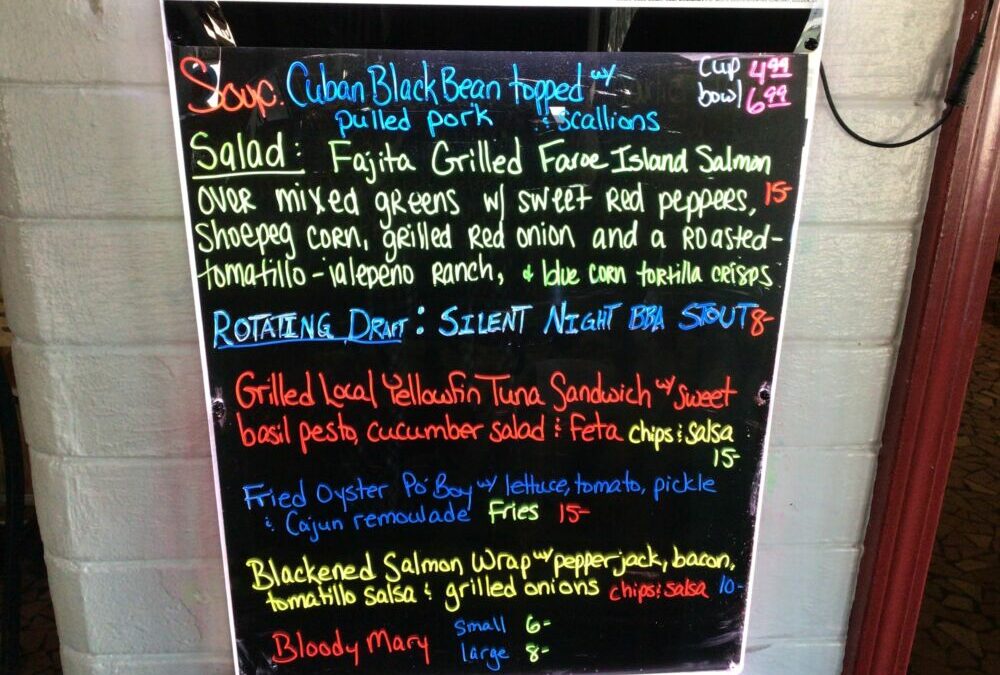 Soup. Cuban Black Bean topped w/ cup 4.99
pulled pork & scallions bowl 6.99
Salad: Fajita Grilled Faroe Island Salmon
over mixed greens w/ sweet red peppers, 15-
Shoepeg corn, grilled red onion and a roasted-
tomatillo-jalepeno ranch, & blue corn tortilla crisps
Rotating Draft: Silent Night BBA Stout 8-
Grilled Local Yellowfin Tuna Sandwich w/ sweet
basil pesto, cucumber salad & feta chips & salsa
15-
Fried Oyster Po'Boy w/ lettuce, tomato, pickle
& Cajun remoulade Fries 15-
Blackened Salmon Wrap w/ pepperjack, bacon,
tomatillo salsa & grilled onions chips & salsa 10-
Bloody Mary small 6-
large 8-